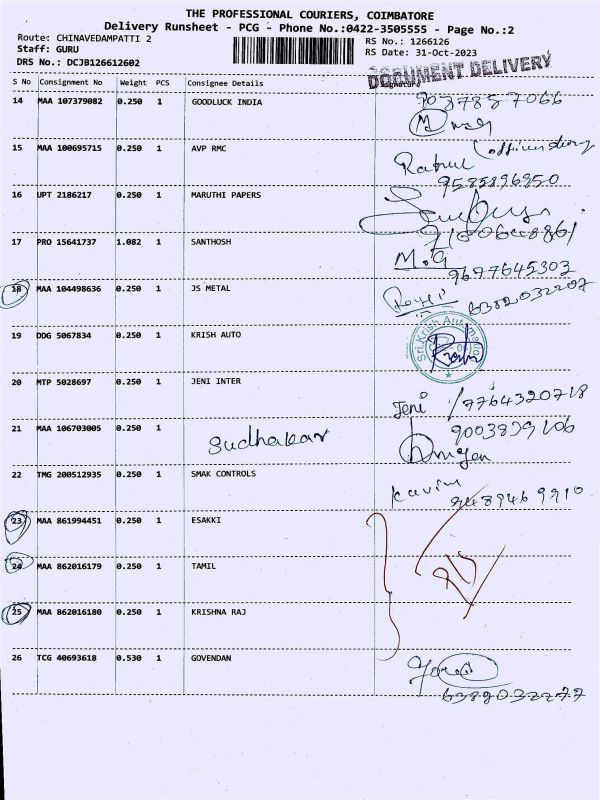 THE PROFESSIONAL COURIERS, COIMBATORE
Delivery Runsheet - PCG - Phone No.:0422-3505555 - Page No.:2
Route: CHINAVEDAMPATTI 2
RS No.: 1266126
Staff: GURU
RS Date: 31-Oct-2023
DRS No.: DCJB126612602
DOCUMENT DELIVERY
S No Consignment No Weight PCS Consignee Details Signature
14 MAA 107379082 0.250 1 GOODLUCK INDIA
15 MAA 100695715 0.250 1 AVP RMC
Rahul
9585896950
16 UPT 2186217 0.250 1 MARUTHI PAPERS
17 PRO 15641737 1.082 1 SANTHOSH
M.G
9677645303
18 MAA 104498636 0.250 1 JS METAL
6382032207
19 DDG 5067834 0.250 1 KRISH AUTO
Sri Krish Automation
20 MTP 5028697 0.250 1 JENI INTER
Jeni / 7764320718
21 MAA 106703005 0.250 1 Sudhakar
9003839106
22 TMG 200512935 0.250 1 SMAK CONTROLS
Kavin
9489469910
23 MAA 861994451 0.250 1 ESAKKI
24 MAA 862016179 0.250 1 TAMIL
25 MAA 862016180 0.250 1 KRISHNA RAJ
26 TCG 40693618 0.530 1 GOVENDAN